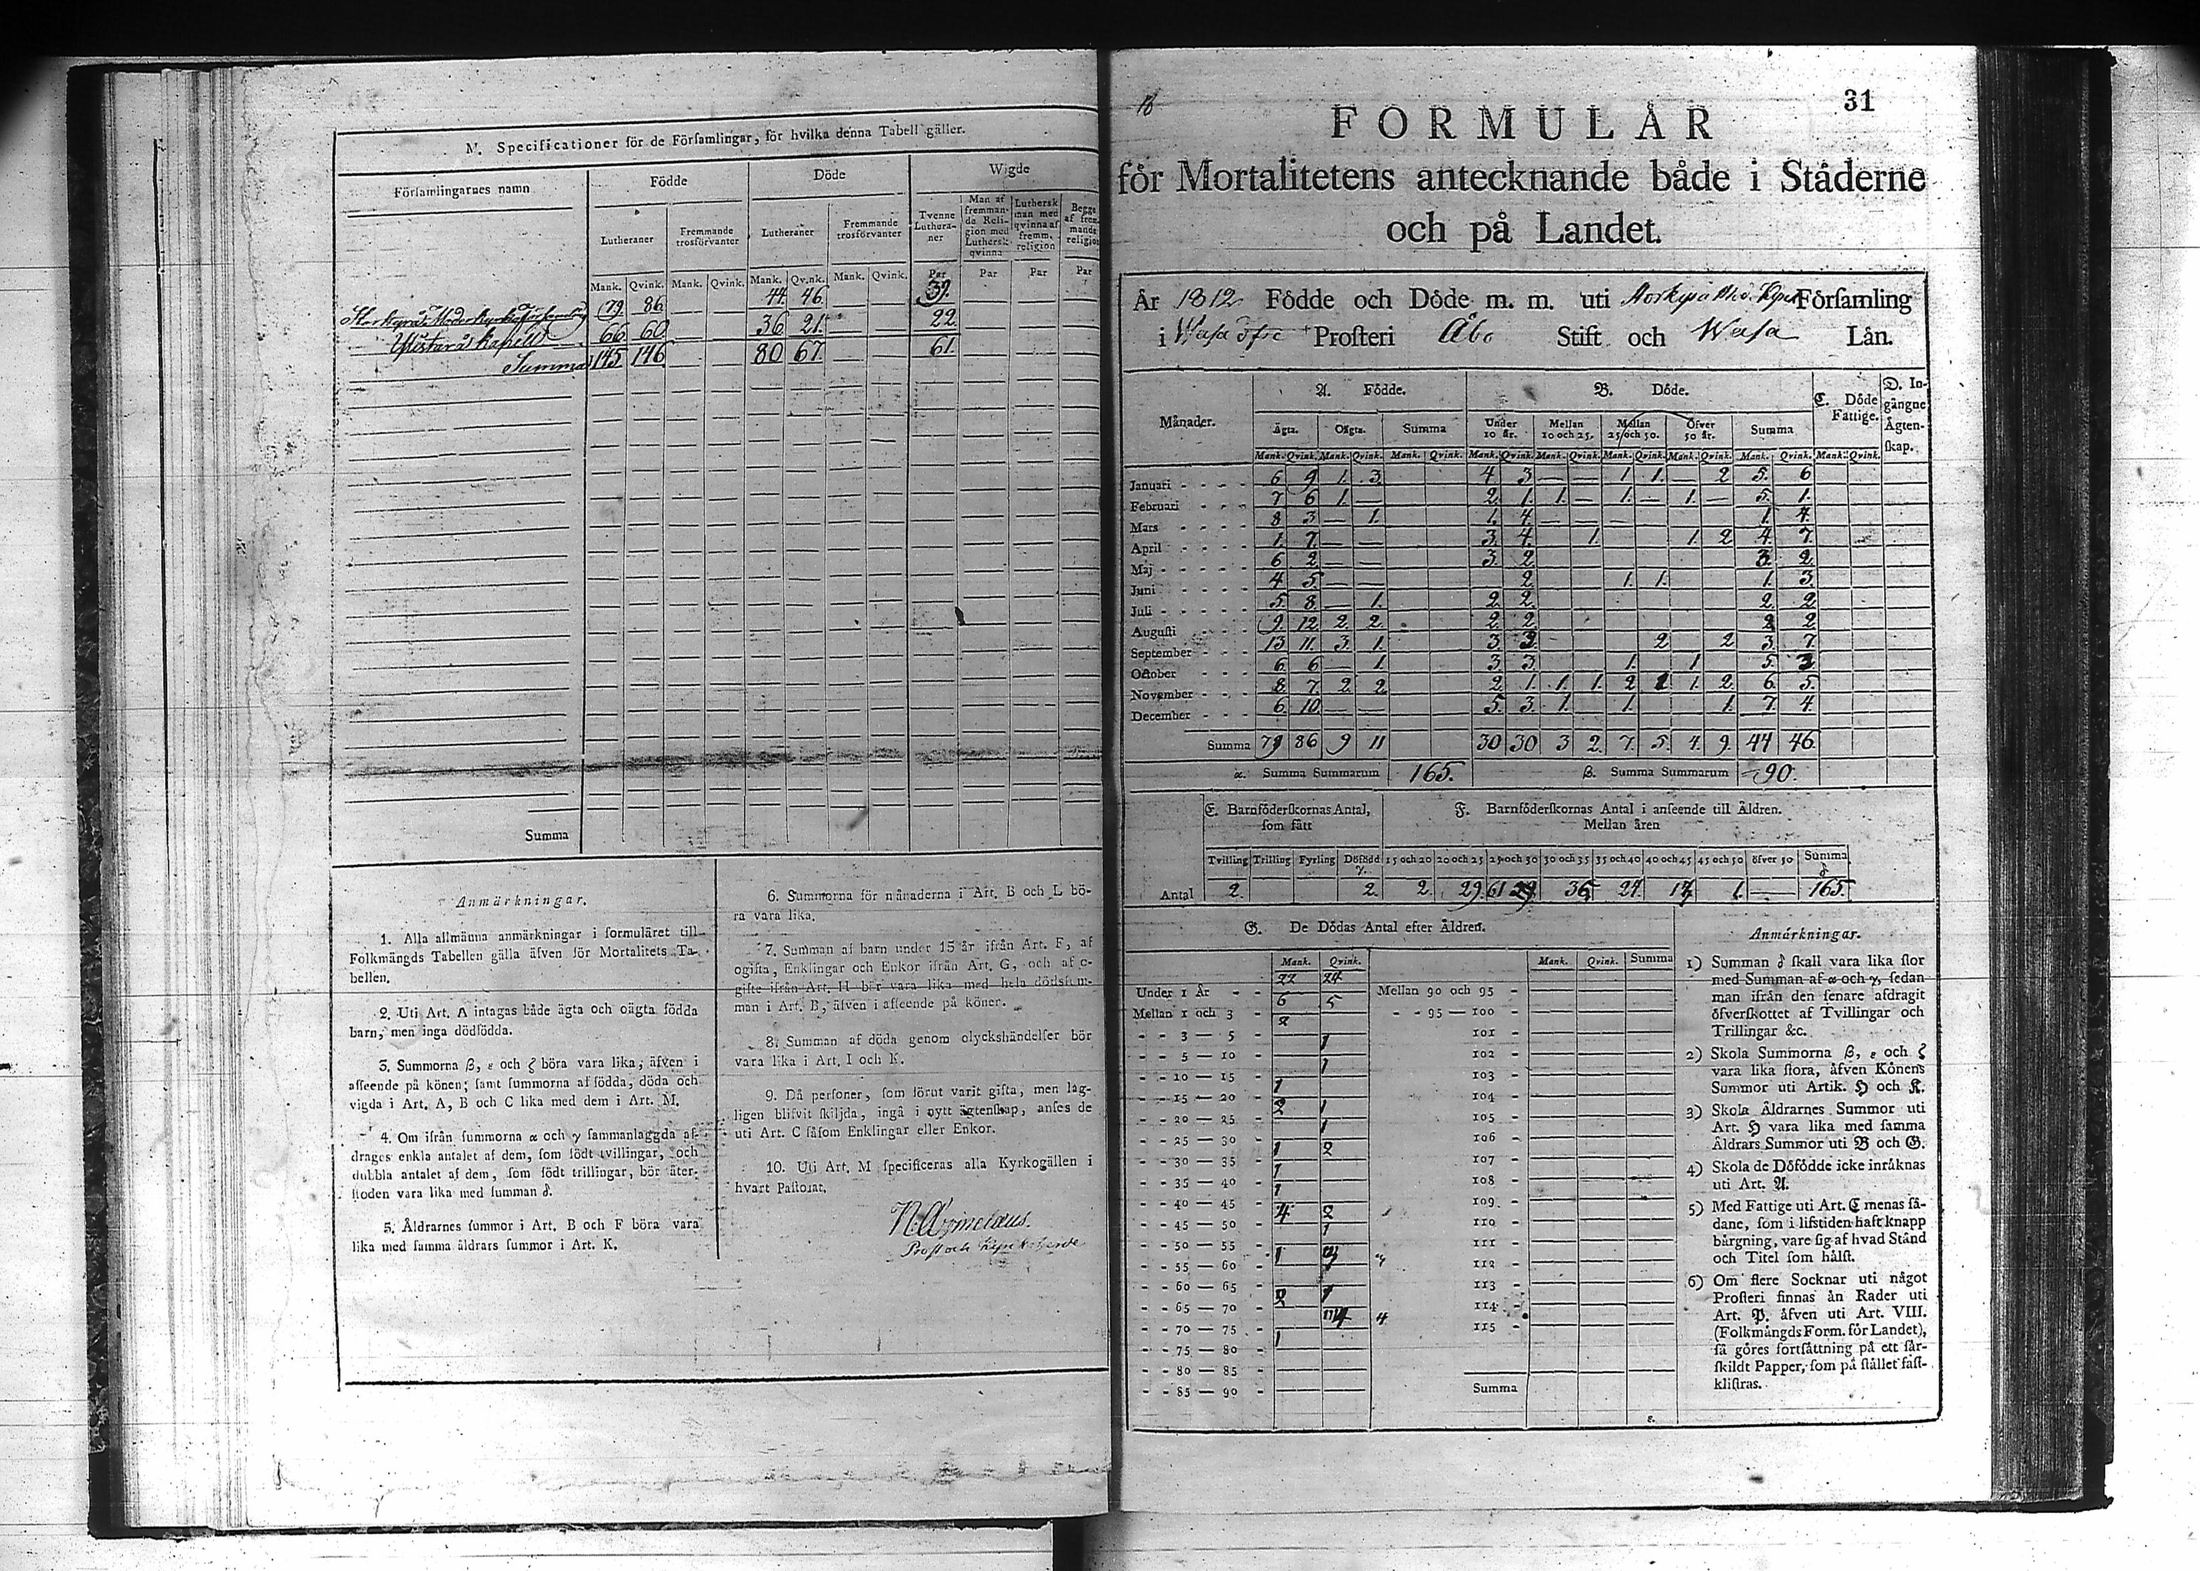 M. Specificationer för de Församlingar, för hvilka denna Tabell gäller.
Församlingarnes namn Födde Döde Wigde
Lutheraner Fremmande trosförvanter Lutheraner Fremmande trosförvanter Tvenne Lutheraner Man af fremmande Religion med Luthersk qvinna Luthersk man med qvinna af fremm. religion Begge af fremmande religion
Mank. Qvink. Mank. Qvink. Mank. Qvink. Mank. Qvink. Par Par Par Par
Storkyrå Moderkyrko Församling 79. 86. 44. 46. 39.
Ylistaro Kapell 66 60 36 21. 22.
Summa 145 146 80 67. 61.
Summa
Anmärkningar.
1. Alla allmänna anmärkningar i formuläret till
Folkmängds Tabellen gälla äfven för Mortalitets Ta-
bellen.
2. Uti Art. A intagas både ägta och oägta födda
barn, men inga dödfödda.
3. Summorna β, ε och ζ böra vara lika, äfven i
afseende på könen; samt summorna af födda, döda och
vigda i Art. A, B och C lika med dem i Art. M.
4. Om ifrån summorna α och γ sammanlaggda af-
drages enkla antalet af dem, som födt tvillingar, och
dubbla antalet af dem, som födt trillingar, bör åter-
stoden vara lika med summan δ.
5. Åldrarnes summor i Art. B och F böra vara
lika med samma åldrars summor i Art. K.
6. Summorna för månaderna i Art. B och L bö-
ra vara lika.
7. Summan af barn under 15 år ifrån Art. F, af
ogifta, Enklingar och Enkor ifrån Art. G, och af e-
gifte ifrån Art. H bör vara lika med hela dödssum-
man i Art. B, äfven i afseende på köner.
8. Summan af döda genom olyckshändelser bör
vara lika i Art. I och K.
9. Då personer, som förut varit gifta, men lag-
ligen blifvit skiljda, ingå i nytt ägtenskap, anses de
uti Art. C såsom Enklingar eller Enkor.
10. Uti Art. M specificeras alla Kyrkogällen i
hvart Pastorat.
Prost och Kyrkoherde
31
FORMULÅR
för Mortalitetens antecknande både i Ståderne
och på Landet.
År 1812 Födde och Döde m. m. uti Storkyrå Församling
i Wasa öfre Prosteri Åbo Stift och Wasa Län.
Månader. A. Födde. B. Döde. C. Döde Fattige. D. Ingångne Ågtenskap.
Ägta. Oägta. Summa Under 10 år. Mellan 10 och 25. Mellan 25 och 50. Öfver 50 år. Summa
Mank. Qvink. Mank. Qvink. Mank. Qvink. Mank. Qvink. Mank. Qvink. Mank. Qvink. Mank. Qvink. Mank. Qvink. Mank. Qvink.
Januari 6 9 1. 3. 4 3 — — 1 1. — 2 5. 6
Februari 7 6 1. — 2. 1. 1. — 1. — 1. — 5. 1.
Mars 8 3 — 1. 1. 4. — — — 1. 4.
April 1 7. — — 3. 4. 1. 1. 2 4. 7.
Maj 6 2. — — 3. 2 3. 2.
Juni 4 5. — — 2. 1. 1. 1. 3.
Juli 5. 8. — 1. 2. 2. 2. 2
Augusti 9. 12 2. 2. 2. 2. 2 2
September 13 11. 3. 1. 3 3. 2 2 3. 7.
October 6. 6 — 1. 3 3. 1. 1 5. 3
November 8. 7. 2. 2. 2. 1. 1. 1. 2 1. 1. 2. 6. 5.
December 6. 10. — — 5. 3. 1. 1. 1. 7. 4.
Summa 79 86 9 11 30 30 3 2. 7. 5. 4. 9. 44 46.
α. Summa Summarum 165. β. Summa Summarum 90.
E. Barnföderskornas Antal, som fått F. Barnföderskornas Antal i anseende till Åldren.
Mellan åren
Tvilling Trilling Fyrling Döfödd γ. 15 och 20 20 och 25 25 och 30 30 och 35 35 och 40 40 och 45 45 och 50 öfver 50 Summa δ
Antal 2. 2. 2. 29. 61 36 1. — 165.
G. De Dödas Antal efter Åldren.
Mank. Qvink. Mank. Qvink. Summa
Under 1 År 22 24 Mellan 90 och 95
Mellan 1 och 3 6 5 95 — 100
3 — 5 2 101
5 — 10 1 102
10 — 15 1 103
15 — 20 1 104
20 — 25 2 1 105
25 — 30 1 106
30 — 35 1 2 107
35 — 40 1 108
40 — 45 1 109
45 — 50 4 2 110
50 — 55 1 111
55 — 60 1 112
60 — 65 113
65 — 70 2 1 114
70 — 75 4 115
75 — 80 1
80 — 85
85 — 90 Summa
ε.
Anmärkningar.
1) Summan δ skall vara lika stor
med Summan af α och γ, sedan
man ifrån den senare afdragit
öfverskottet af Tvillingar och
Trillingar &c.
2) Skola Summorna β, ε och ζ
vara lika stora, åfven Könens
Summor uti Artik. H och K.
3) Skola Åldrarnes Summor uti
Art. H vara lika med samma
Åldrars Summor uti B och G.
4) Skola de Döfödde icke inråknas
uti Art. A.
5) Med Fattige uti Art. C menas så-
dane, som i lifstiden haft knapp
bårgning, vare sig af hvad Stånd
och Titel som hålst.
6) Om flere Socknar uti något
Prosteri finnas ån Rader uti
Art. P. åfven uti Art. VIII.
(Folkmångds Form. för Landet),
så göres fortsåttning på ett sår-
skildt Papper, som på stållet fast-
klistras.